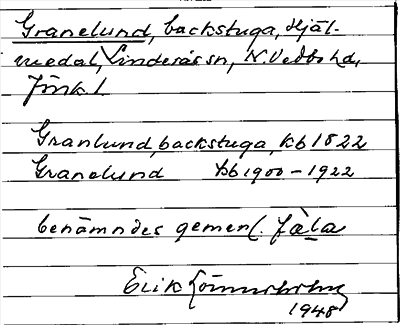 Granelund, backstuga, Hjäl-
medal, Linderås sn, N. Vedbo hd,
Jönk. l.
Granlund, backstuga, kb 1822
Granelund hb 1900-1922
benämndes gemenl. fàla
Erik
1948